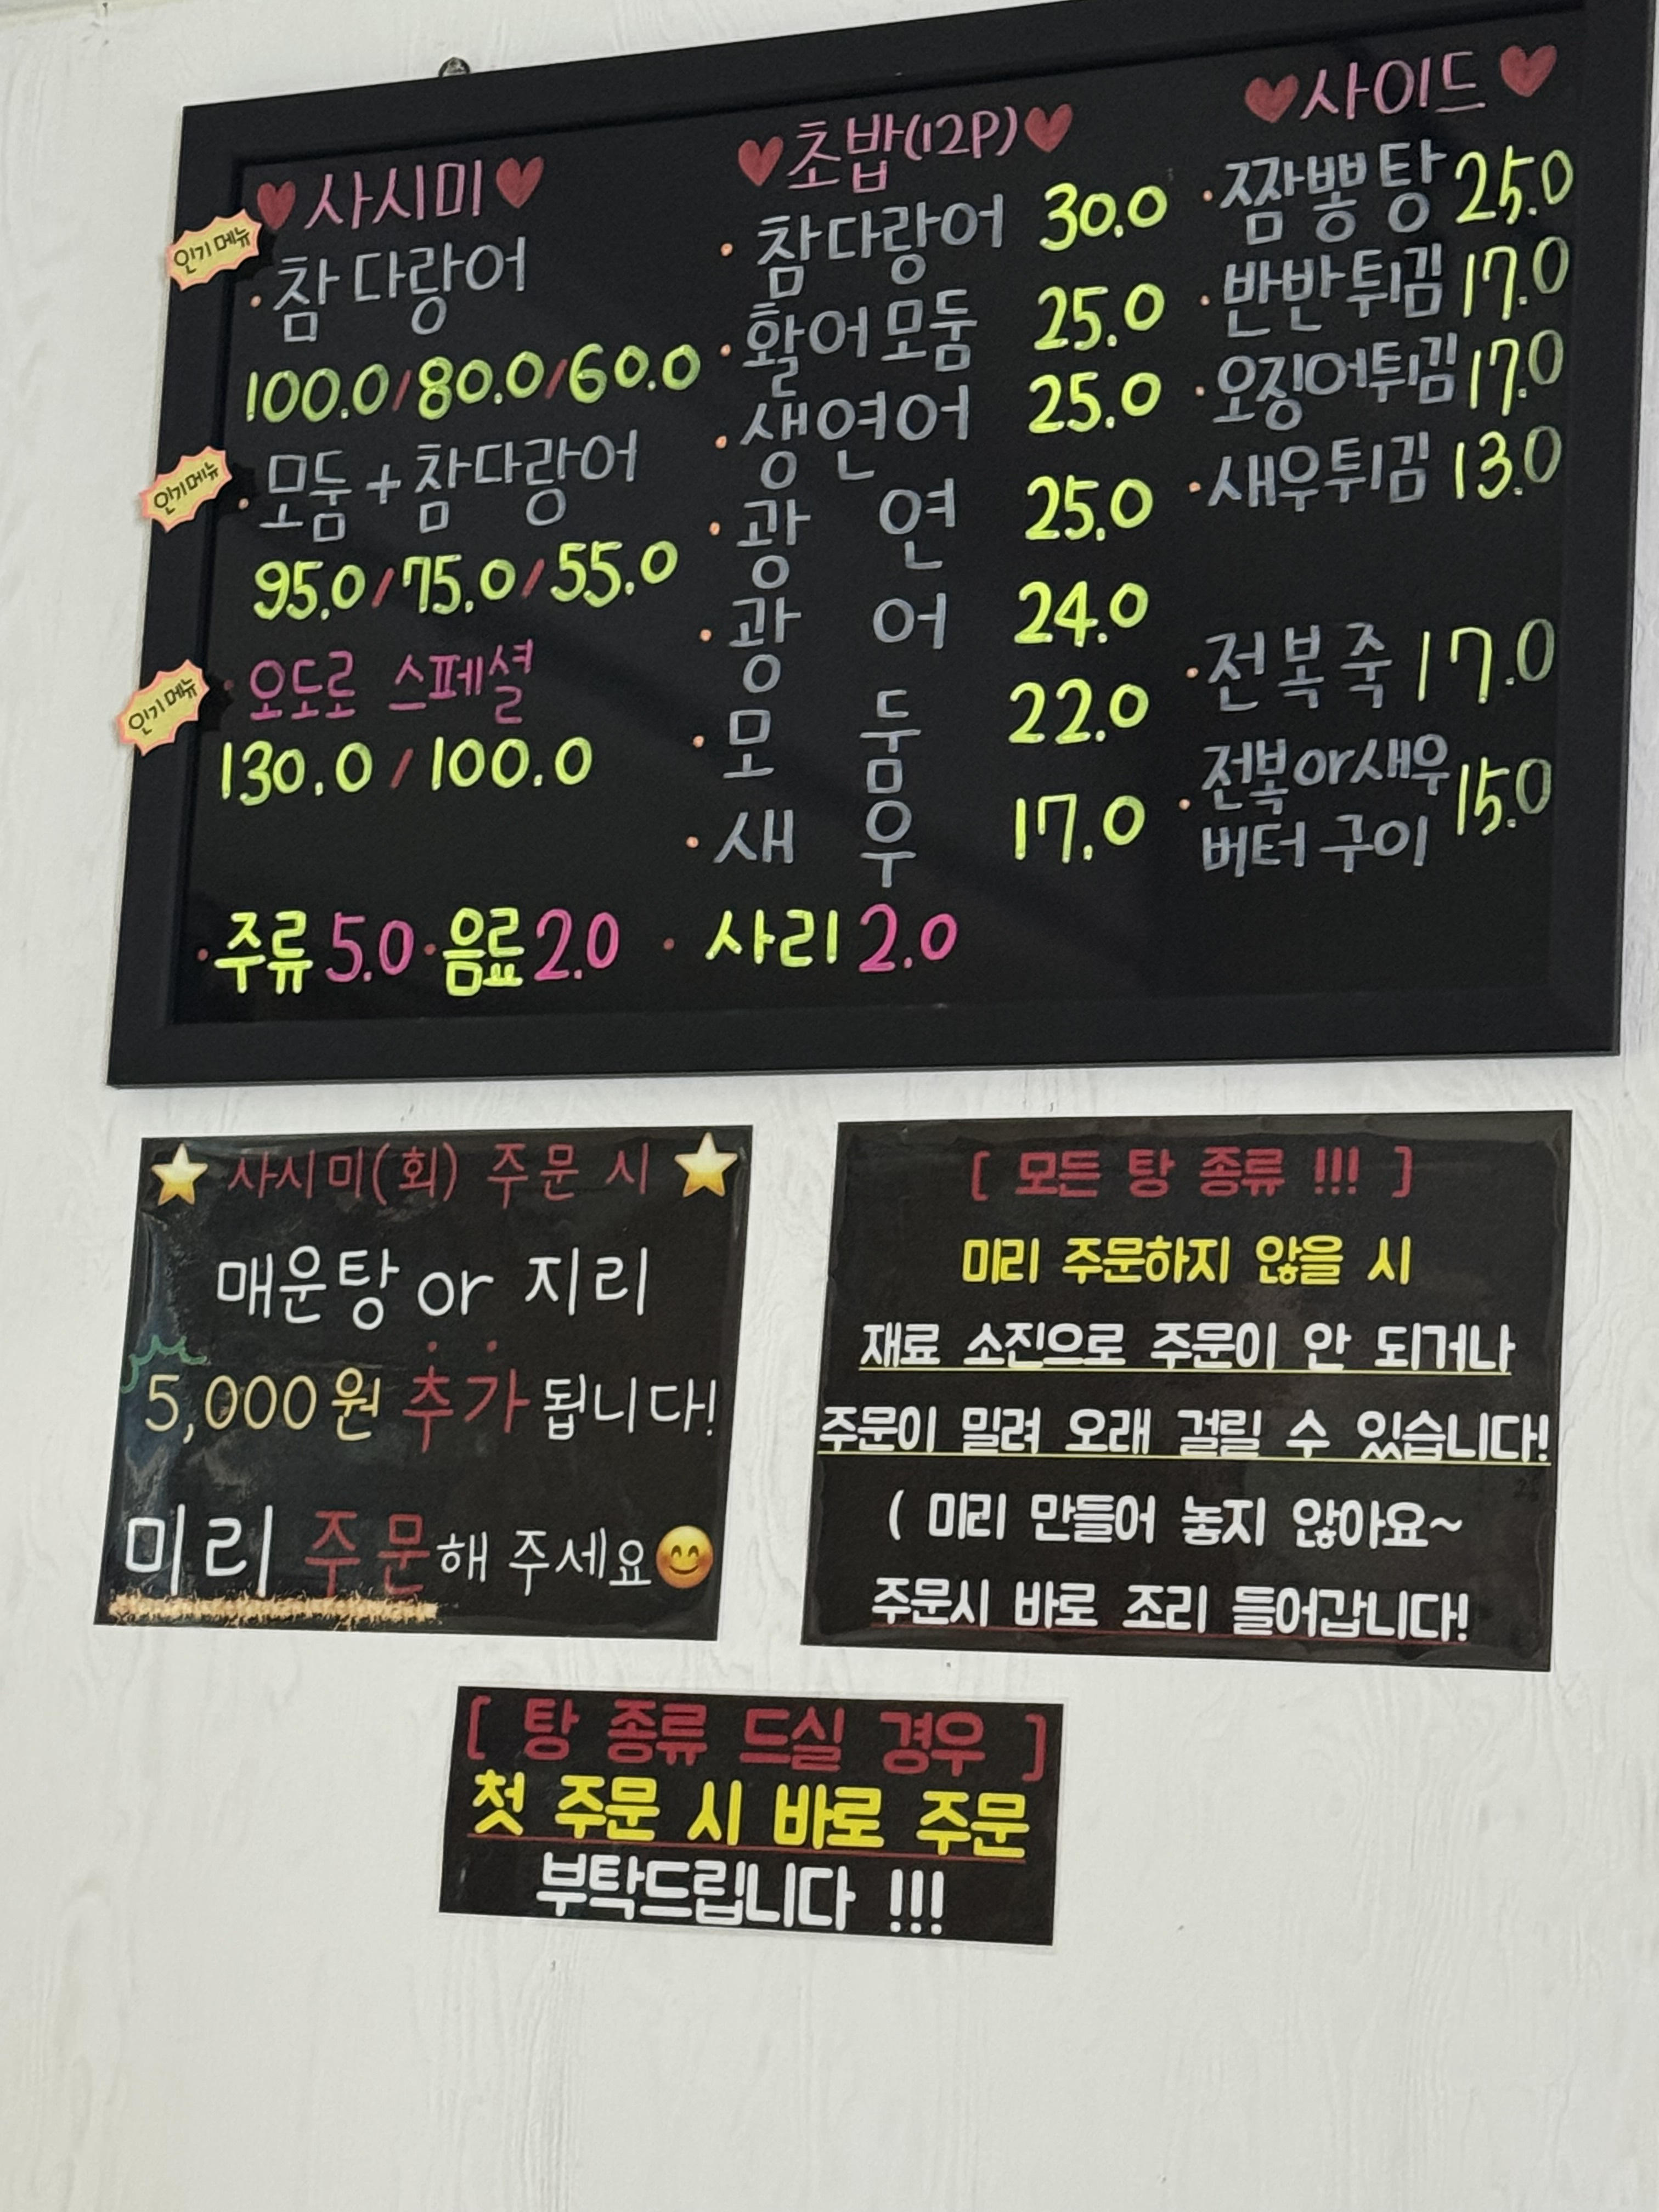 ♥사시미♥
인기메뉴
·참다랑어
100.0/80.0/60.0
인기메뉴
·모둠+참다랑어
95.0/75.0/55.0
인기메뉴
·오도로 스페셜
130.0/100.0
♥초밥(12P)♥
·참다랑어 30.0
·활어모둠 25.0
·생연어 25.0
·광 연 25.0
·광 어 24.0
·모 둠 22.0
·새 우 17.0
♥사이드♥
·짬뽕탕 25.0
·반반튀김 17.0
·오징어튀김 17.0
·새우튀김 13.0
·전복죽 17.0
·전복or새우
버터구이 15.0
·주류 5.0 ·음료 2.0 ·사리 2.0
⭐ 사시미(회) 주문 시 ⭐
매운탕 or 지리
5,000원 추가 됩니다!
미리 주문해 주세요😊
[ 모든 탕 종류 !!! ]
미리 주문하지 않을 시
재료 소진으로 주문이 안 되거나
주문이 밀려 오래 걸릴 수 있습니다!
( 미리 만들어 놓지 않아요~
주문시 바로 조리 들어갑니다!
[ 탕 종류 드실 경우 ]
첫 주문 시 바로 주문
부탁드립니다 !!!